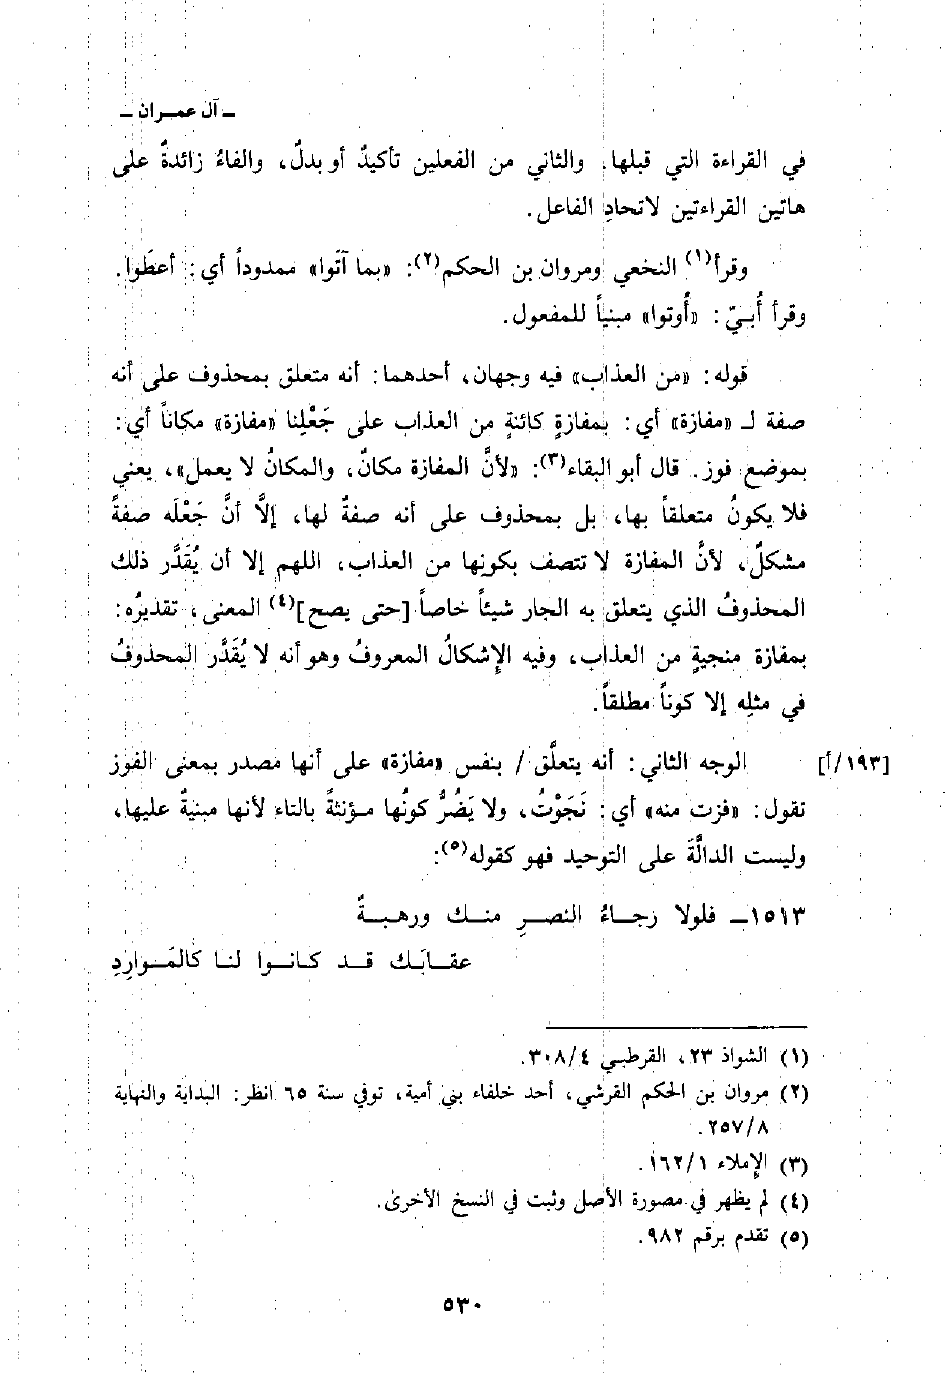 ـ آل عمـران ـ
في القراءة التي قبلها. والثاني من الفعلين تأكيدٌ أو بدلٌ، والفاءُ زائدةٌ على
هاتين القراءتين لاتحادِ الفاعل.
وقرأ(١) النخعي ومروان بن الحكم(٢): «بما آتَوا» ممدوداً أي: أعطَوا.
وقرأ أُبـيّ: «أُوتوا» مبنياً للمفعول.
قوله: «من العذاب» فيه وجهان، أحدهما: أنه متعلق بمحذوف على أنه
صفة لـ «مفازة» أي: بمفازةٍ كائنةٍ من العذاب على جَعْلِنا «مفازة» مكاناً أي:
بموضع فوز. قال أبو البقاء(٣): «لأنَّ المفازة مكانٌ، والمكانُ لا يعمل»، يعني
فلا يكونُ متعلقاً بها، بل بمحذوف على أنه صفةٌ لها، إلاَّ أنَّ جَعْلَه صفةً
مشكلٌ، لأنَّ المفازة لا تتصف بكونها من العذاب، اللهم إلا أن يُقَدَّر ذلك
المحذوفُ الذي يتعلق به الجار شيئاً خاصاً [حتى يصح](٤) المعنى، تقديرُه:
بمفازة منجيةٍ من العذاب، وفيه الإِشكالُ المعروفُ وهو أنه لا يُقَدَّر المحذوفُ
في مثلِه إلا كوناً مطلقاً.
[١٩٣/أ] الوجه الثاني: أنه يتعلَّق / بنفس «مفازة» على أنها مصدر بمعنى الفوز
تقول: «فزت منه» أي: نَجَوْتُ، ولا يَضُرُّ كونُها مـؤنثةً بالتاء لأنها مبنيةٌ عليها،
وليست الدالَّةَ على التوحيد فهو كقوله(٥):
١٥١٣ـ فلولا رجـاءُ النصـرِ منـك ورهبـةٌ
عقـابَـك قـد كـانـوا لنـا كالمَـوارِدِ
(١) الشواذ ٢٣، القرطبـي ٣٠٨/٤.
(٢) مروان بن الحكم القرشي، أحد خلفاء بني أمية، توفي سنة ٦٥ انظر: البداية والنهاية
٢٥٧/٨.
(٣) الإِملاء ١٦٢/١.
(٤) لم يظهر في مصورة الأصل وثبت في النسخ الأخرى.
(٥) تقدم برقم ٩٨٢.
٥٣٠